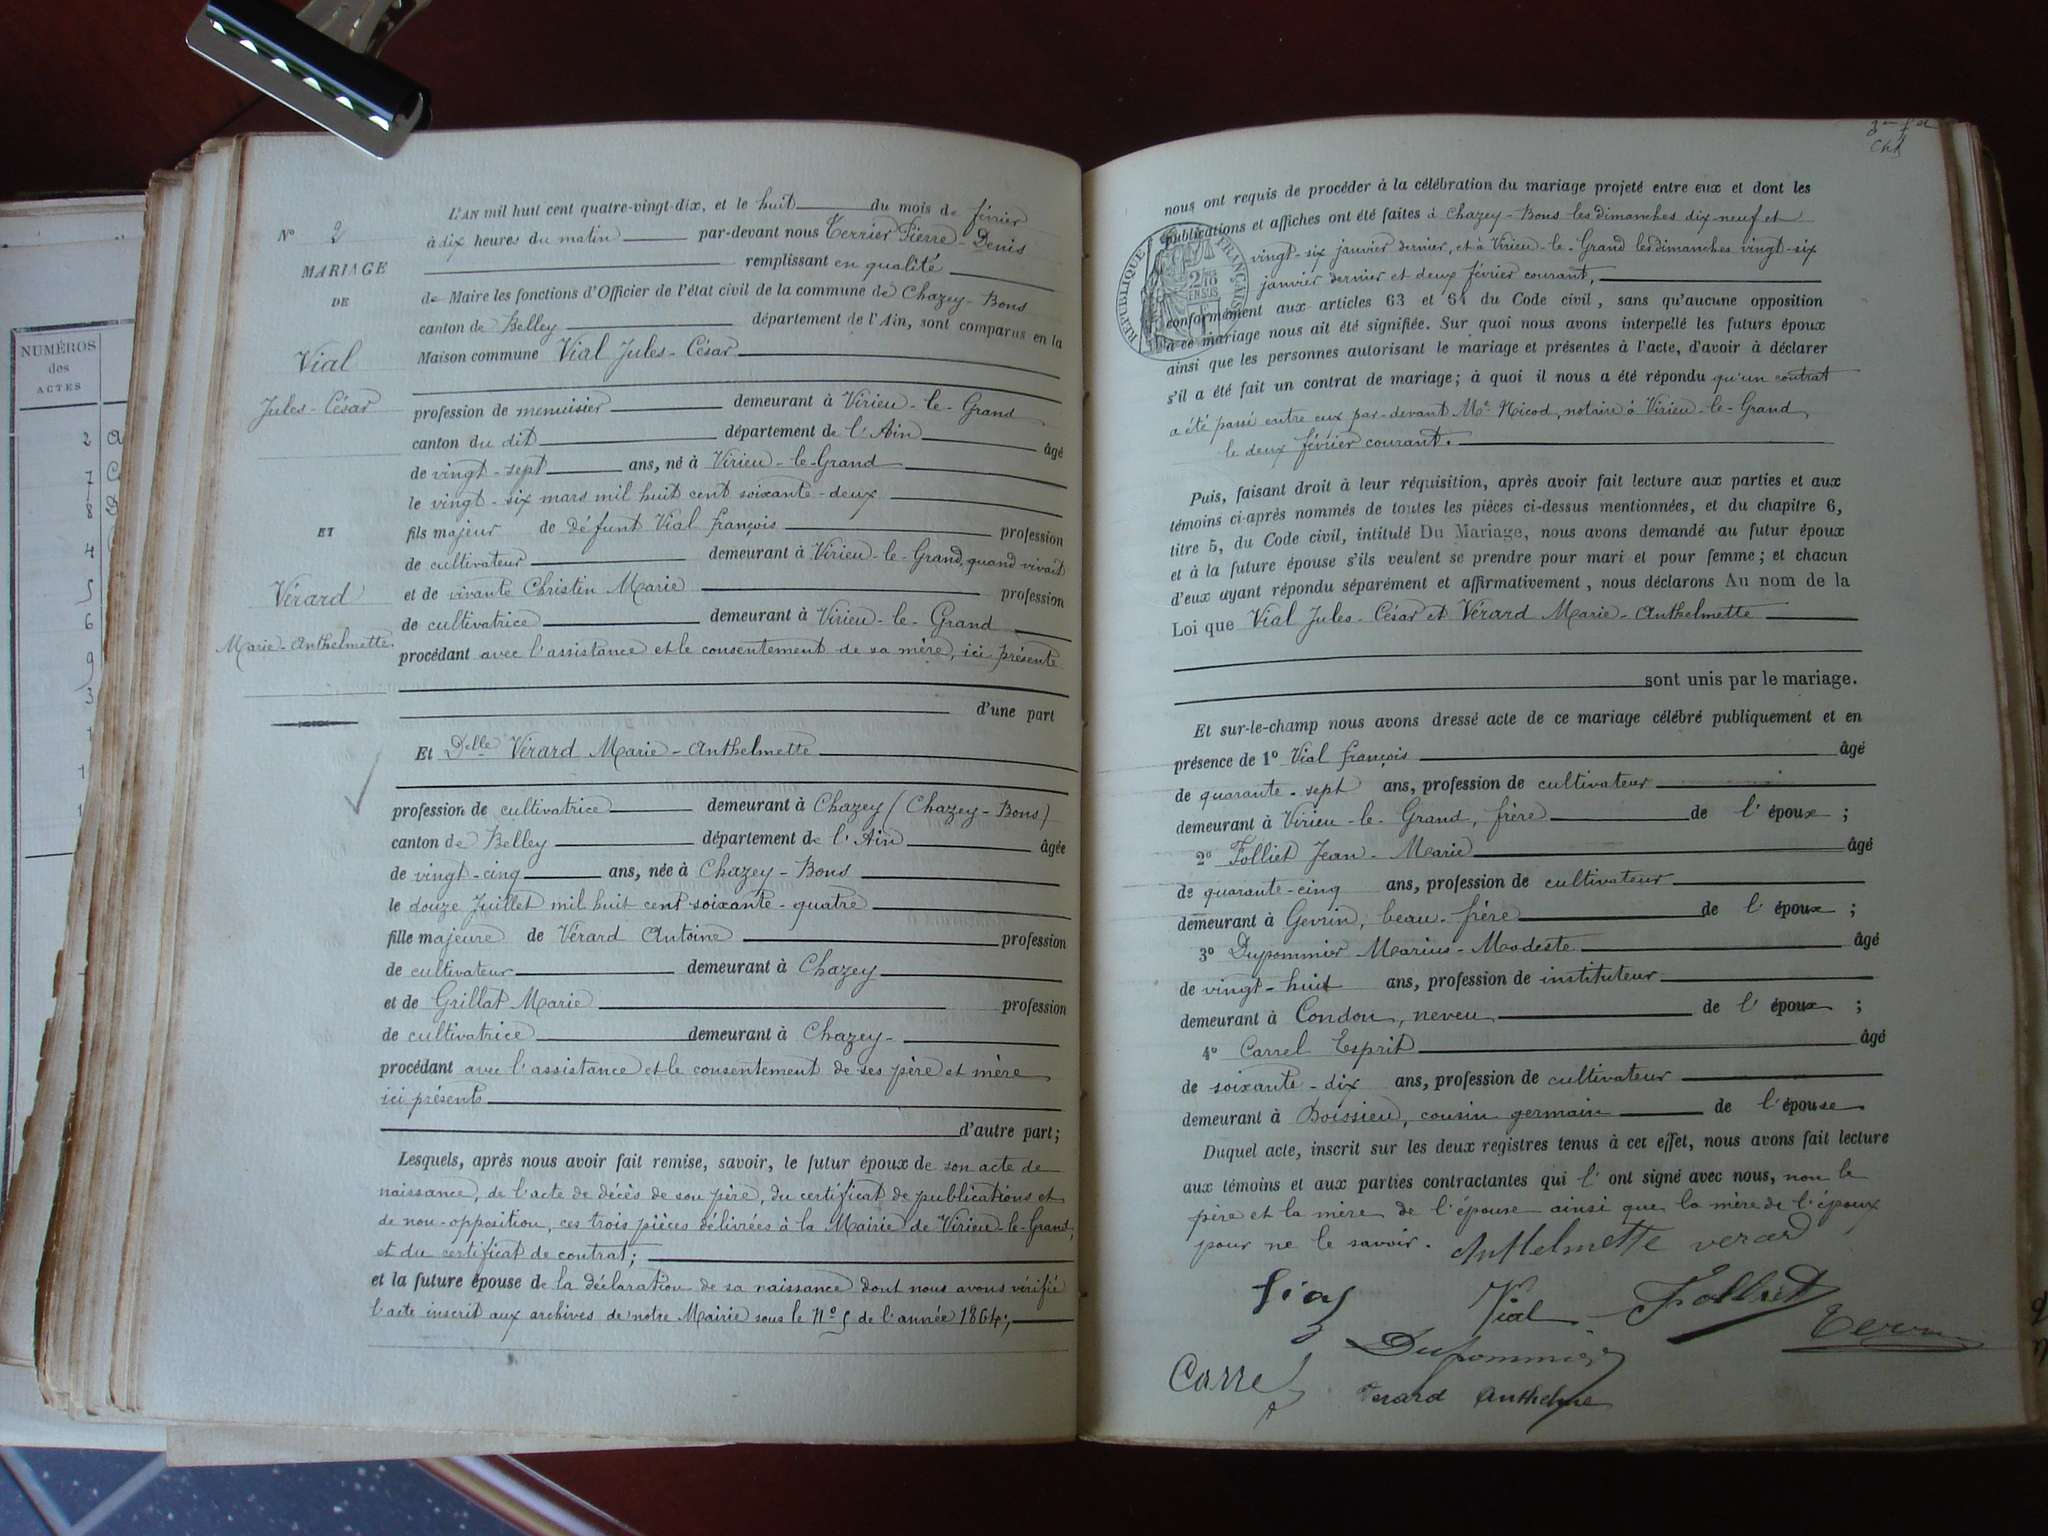 NUMÉROS
des
ACTES
2
7
8
4
5
6
9
3
1
1
1
N° 2
MARIAGE
DE
Vial
Jules-César
ET
Vérard
Marie-Anthelmette.
L'AN mil huit cent quatre-vingt-dix, et le huit du mois de février
à dix heures du matin par-devant nous Terrier Pierre-Denis
remplissant en qualité
de Maire les fonctions d'Officier de l'état civil de la commune de Chazey-Bons
canton de Belley département de l'Ain, sont comparus en la
Maison commune Vial Jules-César
profession de menuisier demeurant à Virieu-le-Grand
canton du dit département de l'Ain âgé
de vingt-sept ans, né à Virieu-le-Grand
le vingt-six mars mil huit cent soixante-deux
fils majeur de défunt Vial françois profession
de cultivateur demeurant à Virieu-le-Grand, quand vivait
et de vivante Christin Marie profession
de cultivatrice demeurant à Virieu-le-Grand
procédant avec l'assistance et le consentement de sa mère, ici présente
d'une part
Et Delle Vérard Marie-Anthelmette
profession de cultivatrice demeurant à Chazey (Chazey-Bons)
canton de Belley département de l'Ain âgée
de vingt-cinq ans, née à Chazey-Bons
le douze Juillet mil huit cent soixante-quatre
fille majeure de Vérard Antoine profession
de cultivateur demeurant à Chazey
et de Grillat Marie profession
de cultivatrice demeurant à Chazey-
procédant avec l'assistance et le consentement de ses père et mère
ici présents
d'autre part;
Lesquels, après nous avoir fait remise, savoir, le futur époux de son acte de
naissance, de l'acte de décès de son père, du certificat de publications et
de non-opposition, ces trois pièces délivrées à la Mairie de Virieu-le-Grand,
et du certificat de contrat;
et la future épouse de la déclaration de sa naissance dont nous avons vérifié
l'acte inscrit aux archives de notre Mairie sous le N° 5 de l'année 1864;
nous ont requis de procéder à la célébration du mariage projeté entre eux et dont les
publications et affiches ont été faites à Chazey-Bons les dimanches dix-neuf et
vingt-six janvier dernier, et à Virieu-le-Grand les dimanches vingt-six
janvier dernier et deux février courant,
RÉPUBLIQUE FRANÇAISE
conformément aux articles 63 et 64 du Code civil, sans qu'aucune opposition
à ce mariage nous ait été signifiée. Sur quoi nous avons interpellé les futurs époux
ainsi que les personnes autorisant le mariage et présentes à l'acte, d'avoir à déclarer
s'il a été fait un contrat de mariage; à quoi il nous a été répondu qu'un contrat
a été passé entre eux par-devant Me Nicod, notaire à Virieu-le-Grand,
le deux février courant.
Puis, faisant droit à leur réquisition, après avoir fait lecture aux parties et aux
témoins ci-après nommés de toutes les pièces ci-dessus mentionnées, et du chapitre 6,
titre 5, du Code civil, intitulé Du Mariage, nous avons demandé au futur époux
et à la future épouse s'ils veulent se prendre pour mari et pour femme; et chacun
d'eux ayant répondu séparément et affirmativement, nous déclarons Au nom de la
Loi que Vial Jules-César et Vérard Marie-Anthelmette
sont unis par le mariage.
Et sur-le-champ nous avons dressé acte de ce mariage célébré publiquement et en
présence de 1° Vial françois âgé
de quarante-sept ans, profession de cultivateur
demeurant à Virieu-le-Grand, frère de l'époux;
2° Folliet Jean-Marie âgé
de quarante-cinq ans, profession de cultivateur
demeurant à Gevrin, beau-frère de l'époux;
3° Dupommier Marius-Modeste âgé
de vingt-huit ans, profession de instituteur
demeurant à Condon, neveu de l'époux;
4° Carrel Esprit âgé
de soixante-dix ans, profession de cultivateur
demeurant à Boissieu, cousin germain de l'épouse
Duquel acte, inscrit sur les deux registres tenus à cet effet, nous avons fait lecture
aux témoins et aux parties contractantes qui l'ont signé avec nous, non le
père et la mère de l'épouse ainsi que la mère de l'époux
pour ne le savoir. Anthelmette verard
Vial Folliet
Dupommier
Carrel
verard anthelme